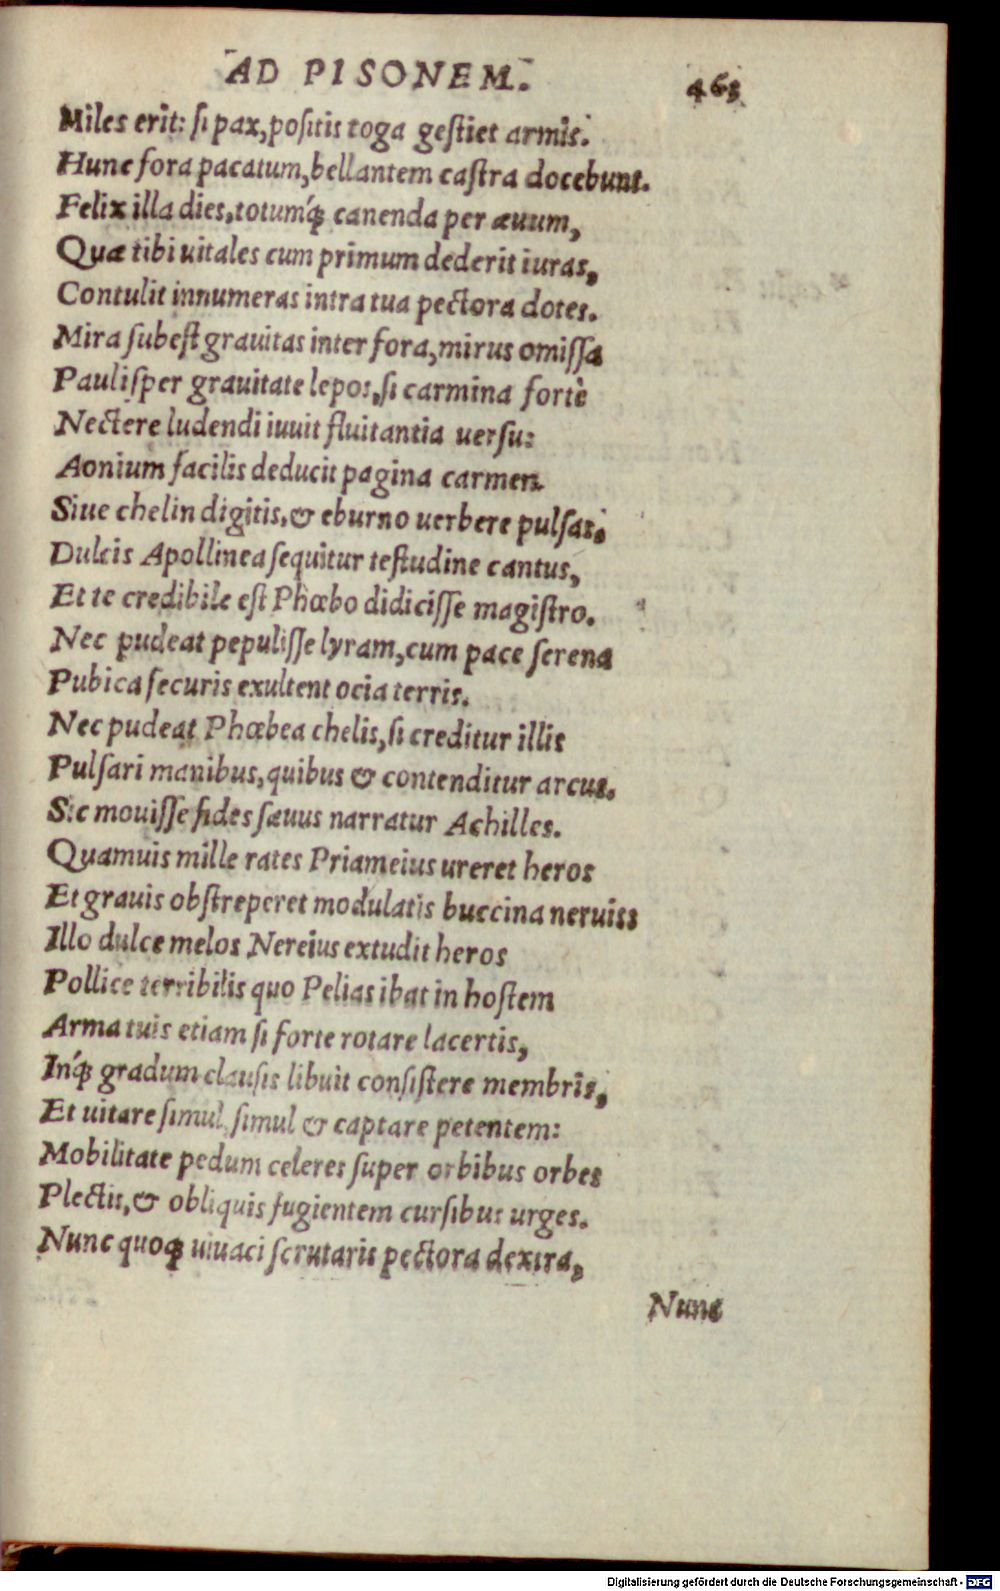 AD PISONEM.
463
Miles erit: si pax, positis toga gestiet armis.
Hunc fora pacatum, bellantem castra docebunt.
Felix illa dies, totumq́; canenda per æuum,
Quæ tibi uitales cum primum dederit iuras,
Contulit innumeras intra tua pectora dotes.
Mira subest grauitas inter fora, mirus omissa
Paulisper grauitate lepos, si carmina fortè
Nectere ludendi iuuit fluitantia uersu:
Aonium facilis deducit pagina carmen.
Siue chelin digitis, & eburno uerbere pulsas;
Dulcis Apollinea sequitur testudine cantus,
Et te credibile est Phœbo didicisse magistro.
Nec pudeat pepulisse lyram, cum pace serena
Pubica securis exultent ocia terris.
Nec pudeat Phœbea chelis, si creditur illis
Pulsari manibus, quibus & contenditur arcus.
Sic mouisse fides sæuus narratur Achilles.
Quamuis mille rates Priameius ureret heros
Et grauis obstreperet modulatis buccina neruis:
Illo dulce melos Nereius extudit heros
Pollice terribilis quo Pelias ibat in hostem
Arma tuis etiam si forte rotare lacertis,
Inq́; gradum clausis libuit consistere membris,
Et uitare simul, simul & captare petentem:
Mobilitate pedum celeres super orbibus orbes
Plectis, & obliquis fugientem cursibus urges.
Nunc quoq; uiuaci scrutaris pectora dextra,
Nunc
Digitalisierung gefördert durch die Deutsche Forschungsgemeinschaft - DFG